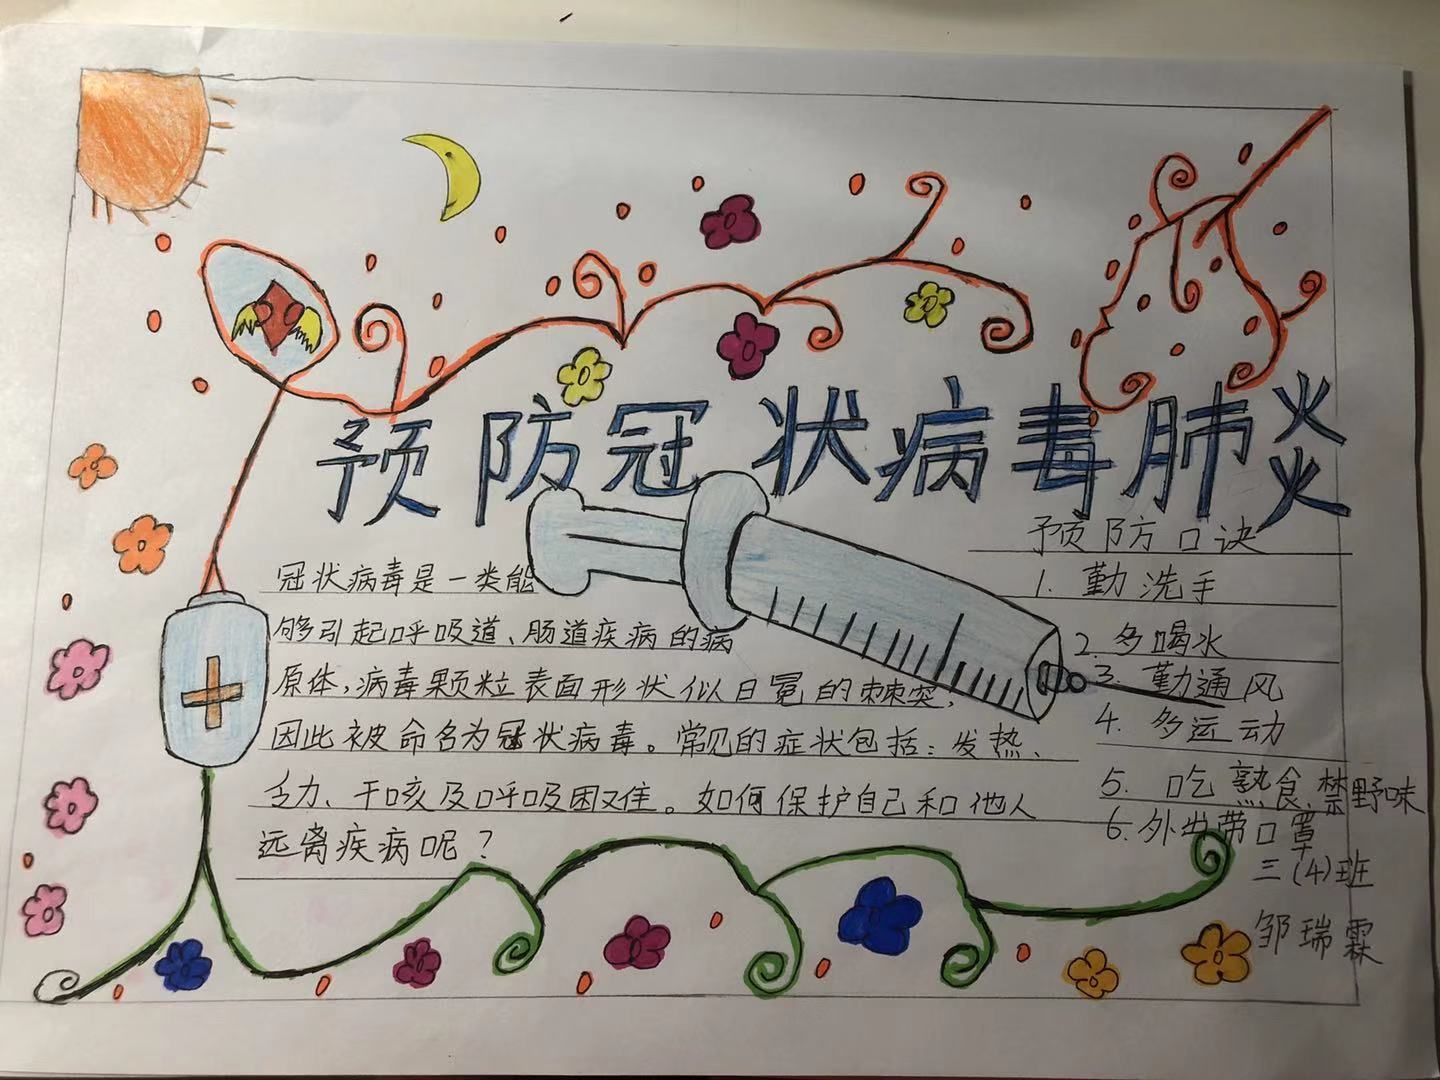 预防冠状病毒肺炎
冠状病毒是一类能
够引起呼吸道、肠道疾病的病
原体,病毒颗粒表面形状似日冕的棘突,
因此被命名为冠状病毒。常见的症状包括:发热、
乏力、干咳及呼吸困难。如何保护自己和他人
远离疾病呢?
预防口诀
1. 勤洗手
2. 多喝水
3. 勤通风
4. 多运动
5. 吃熟食、禁野味
6. 外出带口罩
三(4)班
邹瑞霖